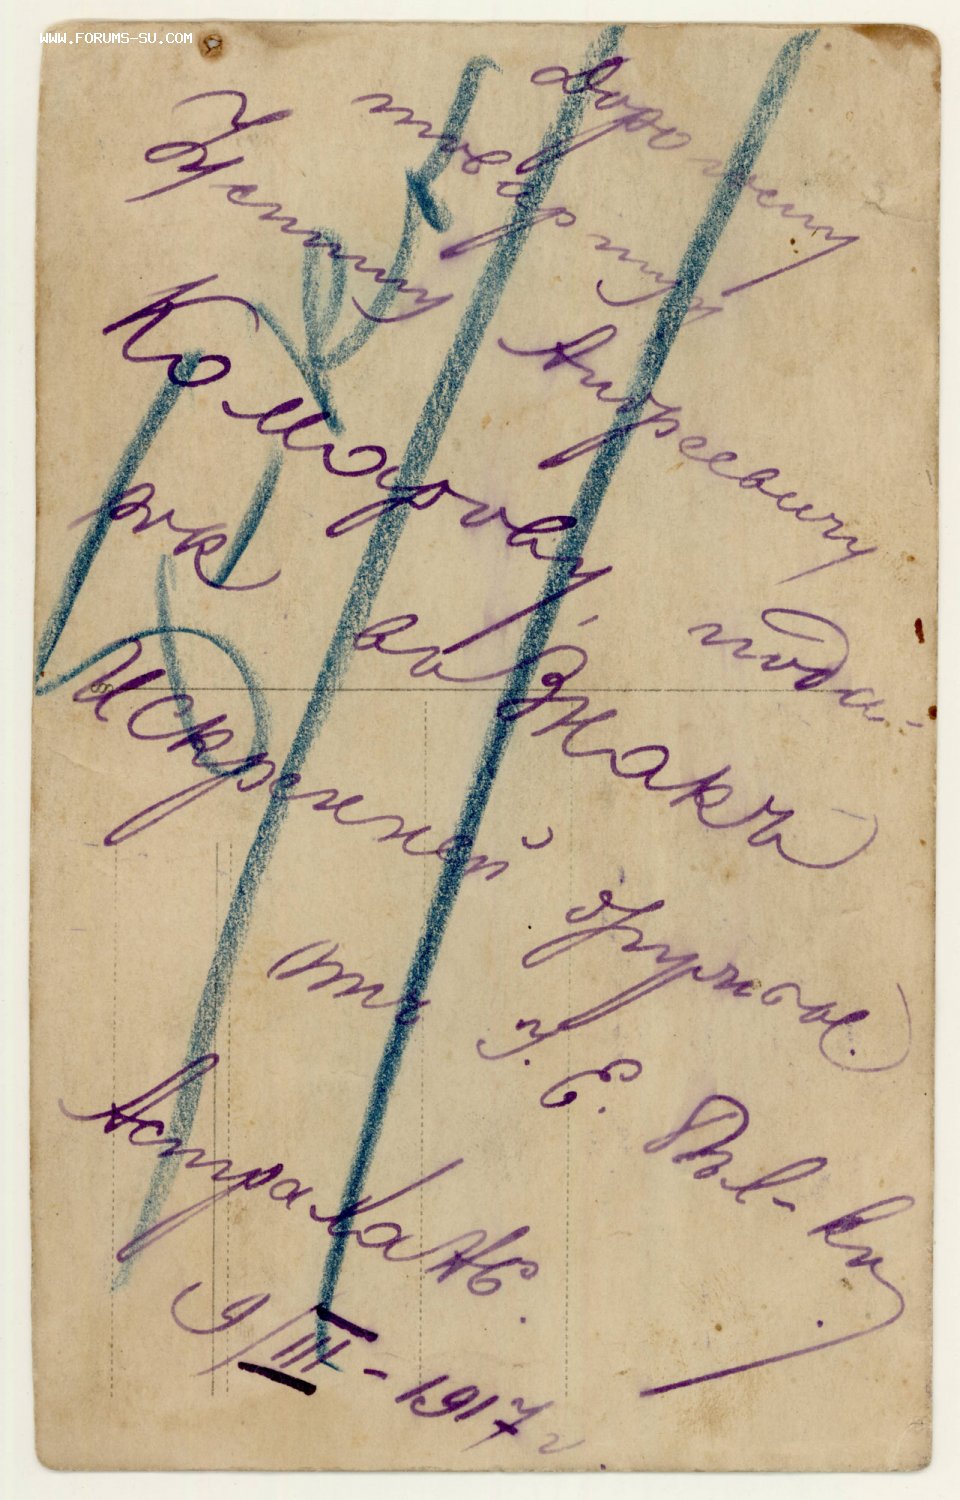 WWW.FORUMS-SU.COM
Дорогому
товарищу
Устину Андреевичу
Комарову, пода-
рок въ Знакъ
Искренней дружбы.
отъ У. Е.
Астрахань.
9/III - 1917 г